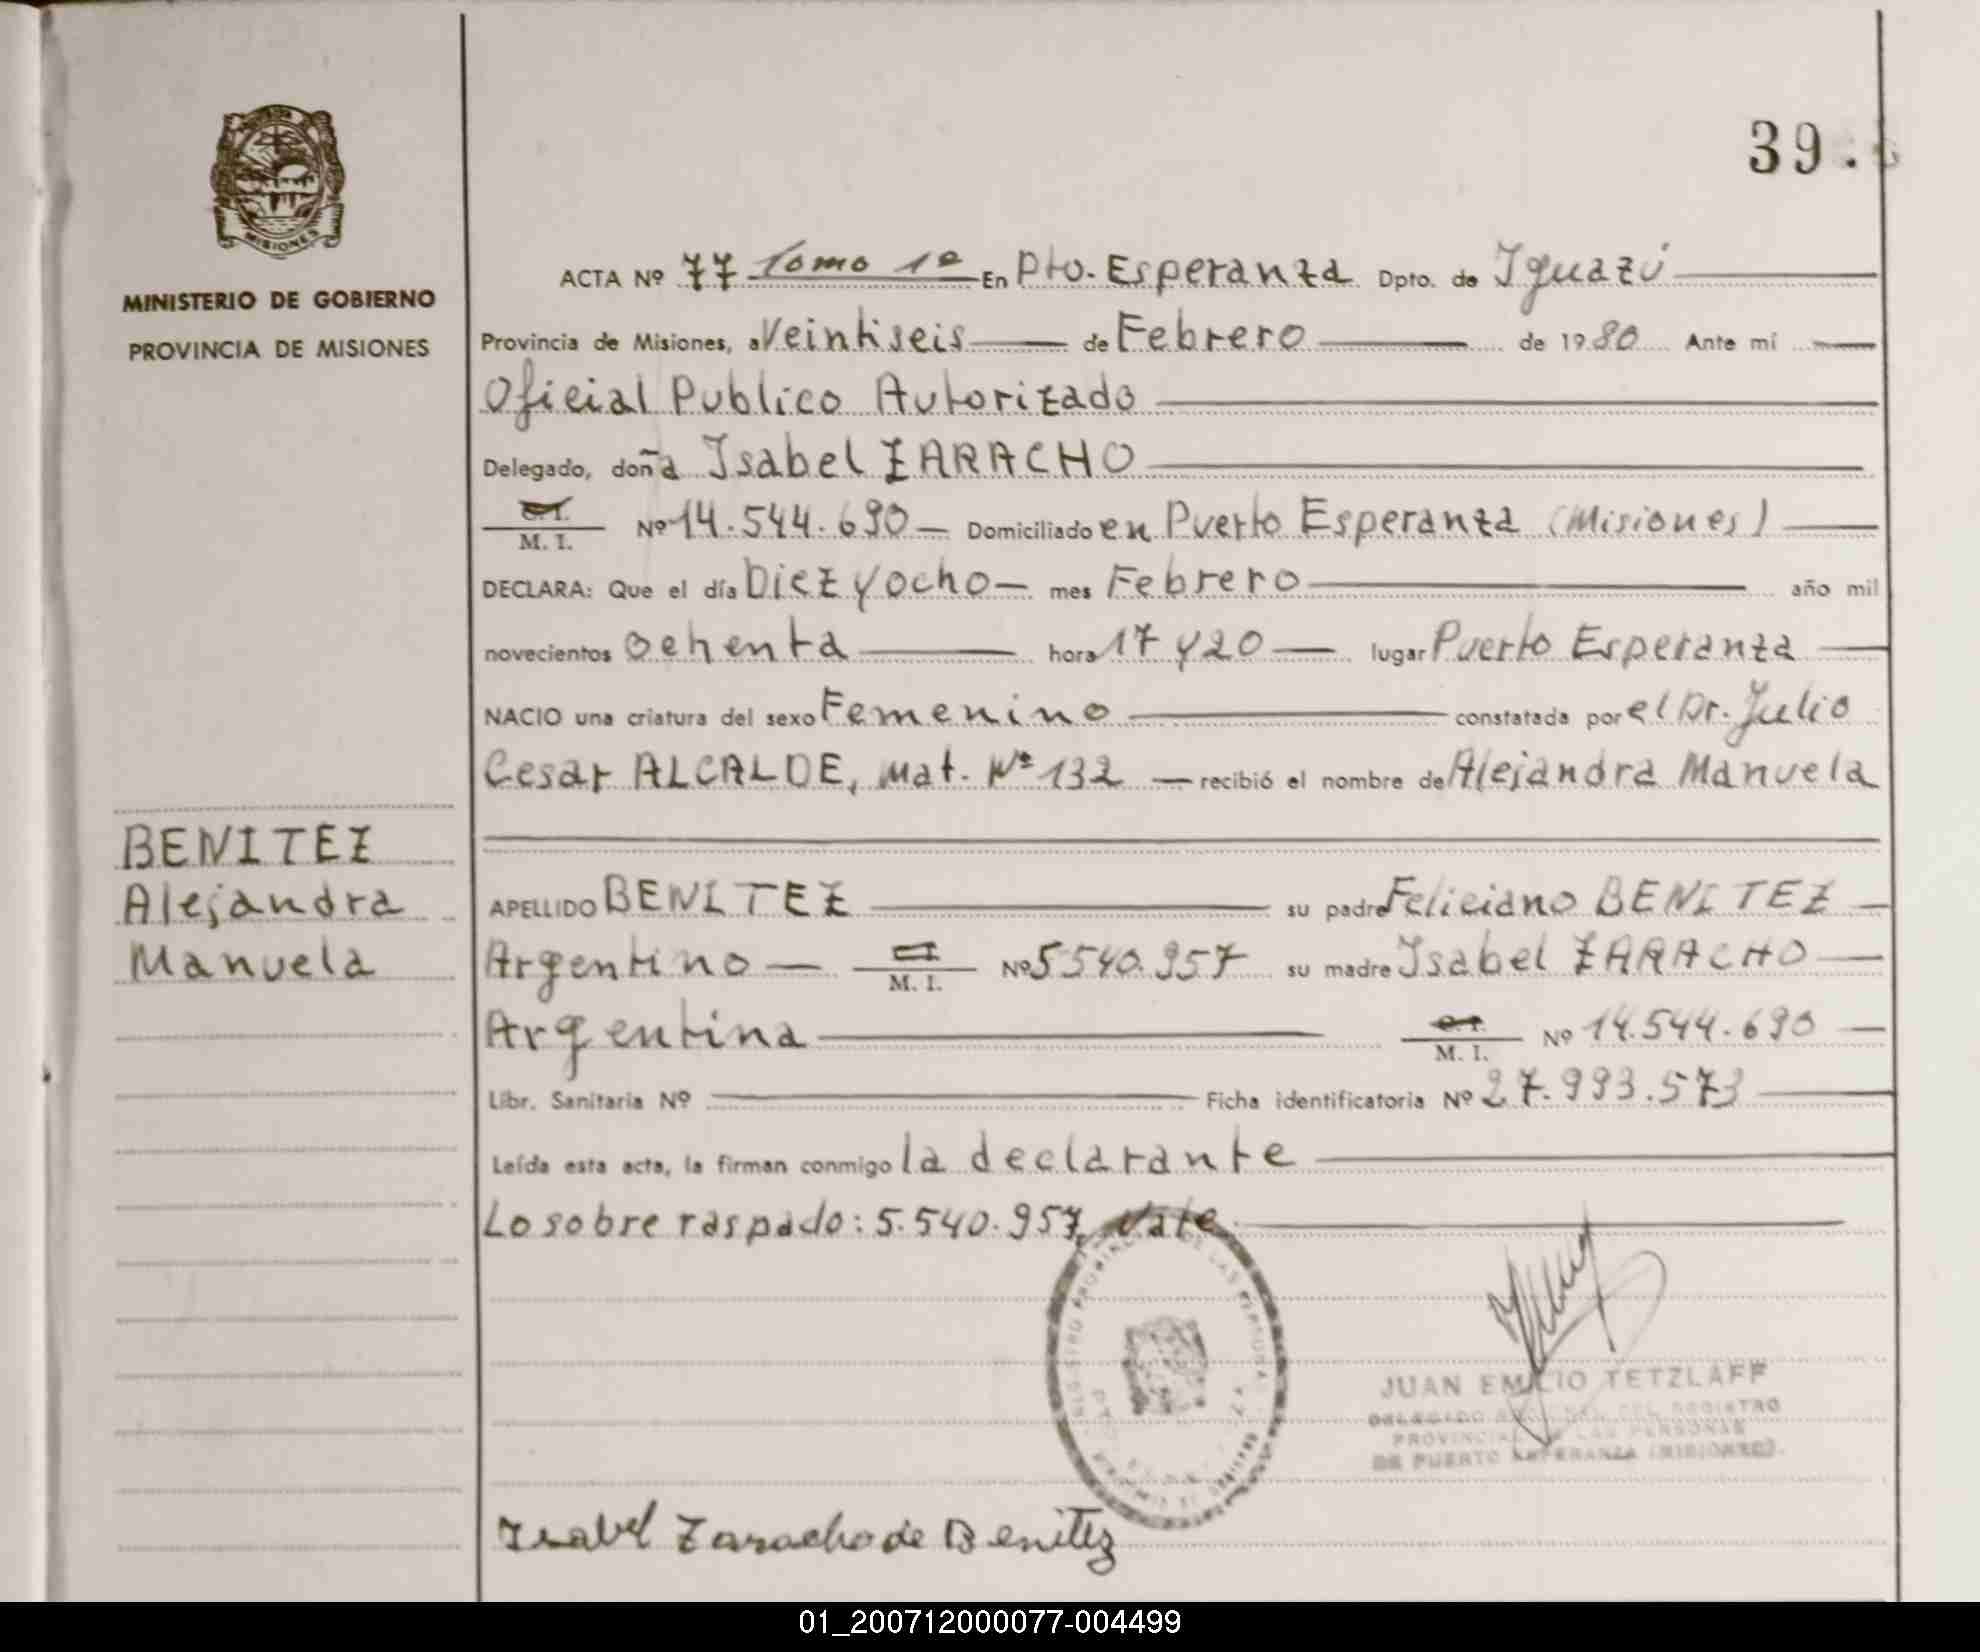 39.
MISIONES
MINISTERIO DE GOBIERNO
PROVINCIA DE MISIONES
BENITEZ
Alejandra
Manuela
ACTA Nº 77 Tomo 1º En Pto. Esperanza Dpto. de Iguazú
Provincia de Misiones, a Veintiseis de Febrero de 1980 Ante mí
Oficial Publico Autorizado
Delegado, doña Isabel ZARACHO
C. I.
M. I. Nº 14.544.690 Domiciliado en Puerto Esperanza (Misiones)
DECLARA: Que el día Diez y ocho mes Febrero año mil
novecientos ochenta hora 17 y 20 lugar Puerto Esperanza
NACIO una criatura del sexo Femenino constatada por el Dr. Julio
Cesar ALCALDE, Mat. Nº 132 recibió el nombre de Alejandra Manuela
APELLIDO BENITEZ su padre Feliciano BENITEZ
Argentino C. I. M. I. Nº 5540.957 su madre Isabel ZARACHO
Argentina C. I. M. I. Nº 14.544.690
Libr. Sanitaria Nº Ficha identificatoria Nº 27.993.573
Leída esta acta, la firman conmigo la declarante
Lo sobre raspado: 5.540.957, Vale
JUAN EMILIO TETZLAFF
DELEGADO DEL REGISTRO
PROVINCIAL DE LAS PERSONAS
DE PUERTO ESPERANZA (MISIONES)
Isabel Zaracho de Benitez
01_200712000077-004499